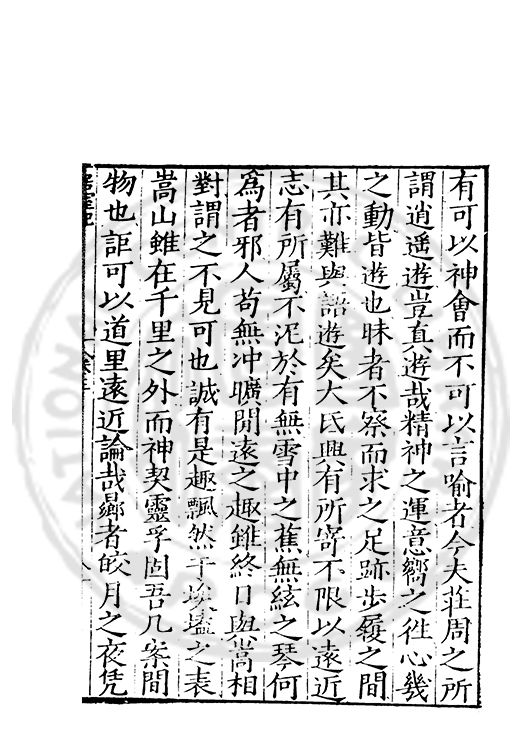 有可以神㑹而不可以言喻者今夫莊周之所
謂逍遥遊豈真遊哉精神之運意嚮之徃心幾
之動皆遊也昧者不察而求之足跡歩履之間
其亦難與語遊矣大氐興有所寄不限以遠近
志有所屬不泥於有無雪中之蕉無絃之琴何
為者邪人苟無冲曠閒遠之趣雖終日與嵩相
對謂之不見可也誠有是趣飄然于埃壒之表
嵩山雖在千里之外而神契靈孚固吾几案間
物也詎可以道里遠近論哉曏者皎月之夜凭